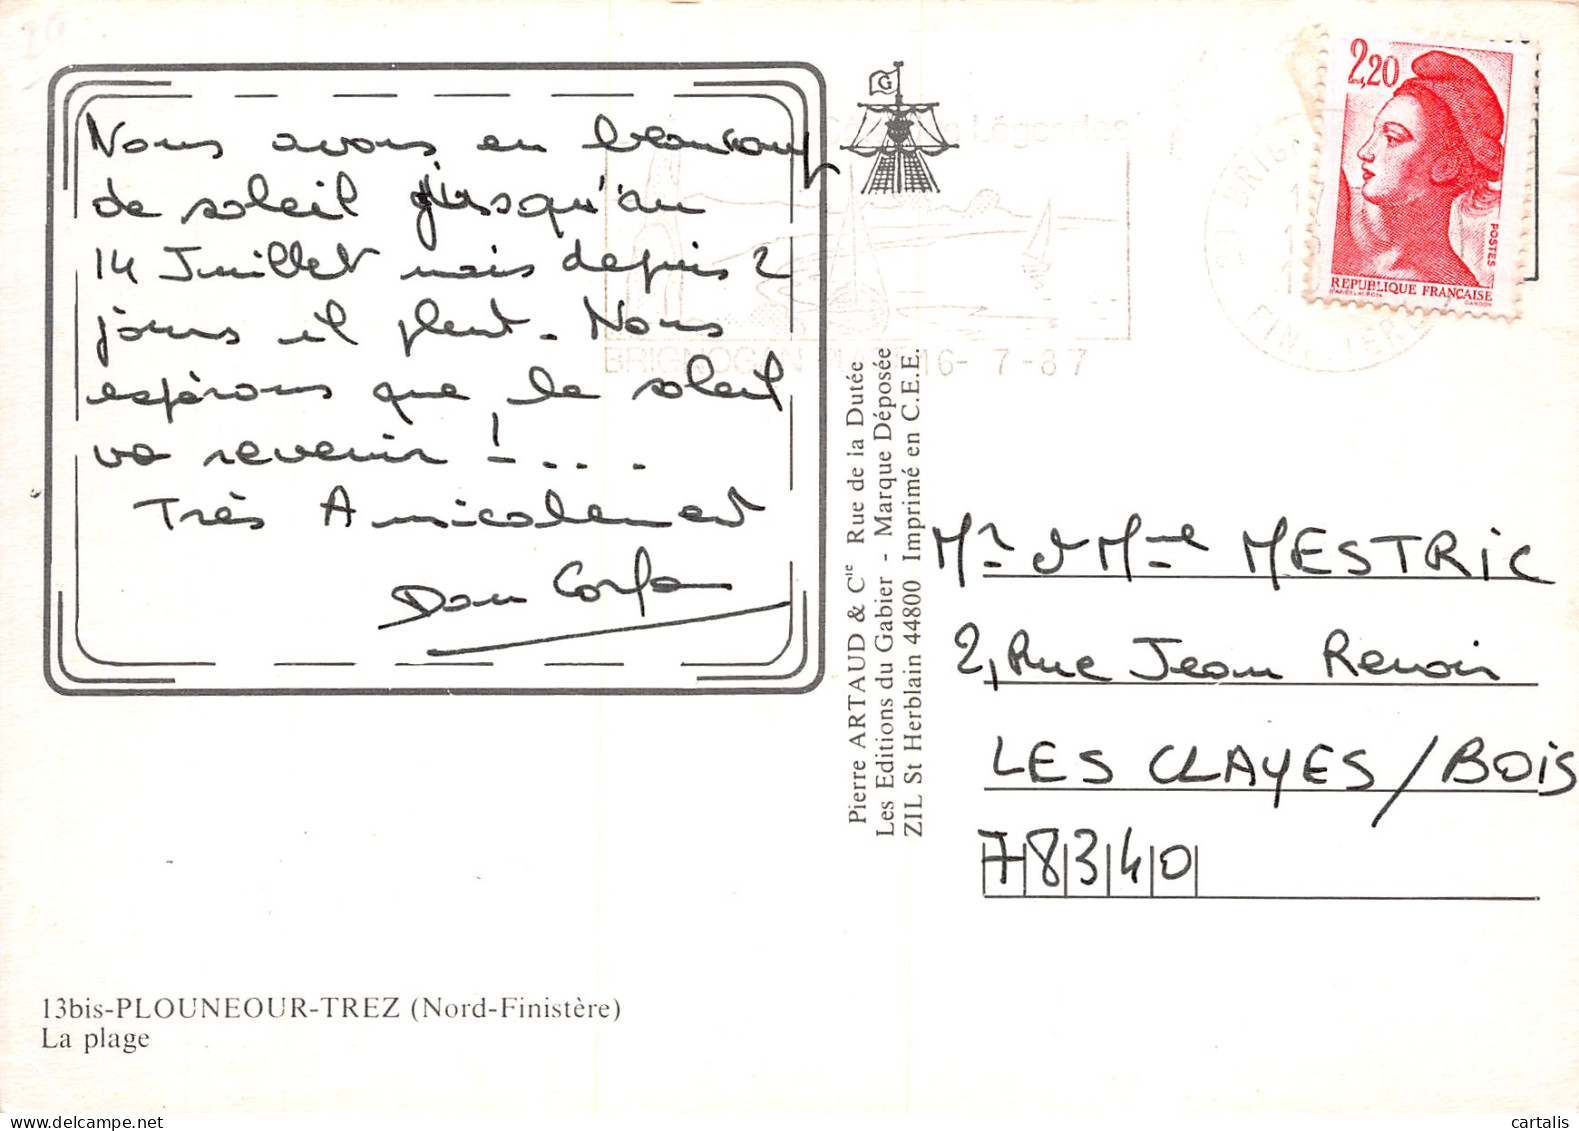 Nous avons eu beaucoup
de soleil jusqu'au
14 Juillet mais depuis 2
jours il pleut. Nous
espérons que le soleil
va revenir !...
Très Amicalement
13bis-PLOUNEOUR-TREZ (Nord-Finistère)
La plage
G
Légendes
BRIGNOGAN PLAGE 16-7-87
Pierre ARTAUD & Cie Rue de la Dutée
Les Editions du Gabier - Marque Déposée
ZIL St Herblain 44800 Imprimé en C.E.E.
2,20
POSTES
REPUBLIQUE FRANÇAISE
Mr & Mme MESTRIC
2, Rue Jean Renoir
LES CLAYES/BOIS
78340
cartalis
www.delcampe.net